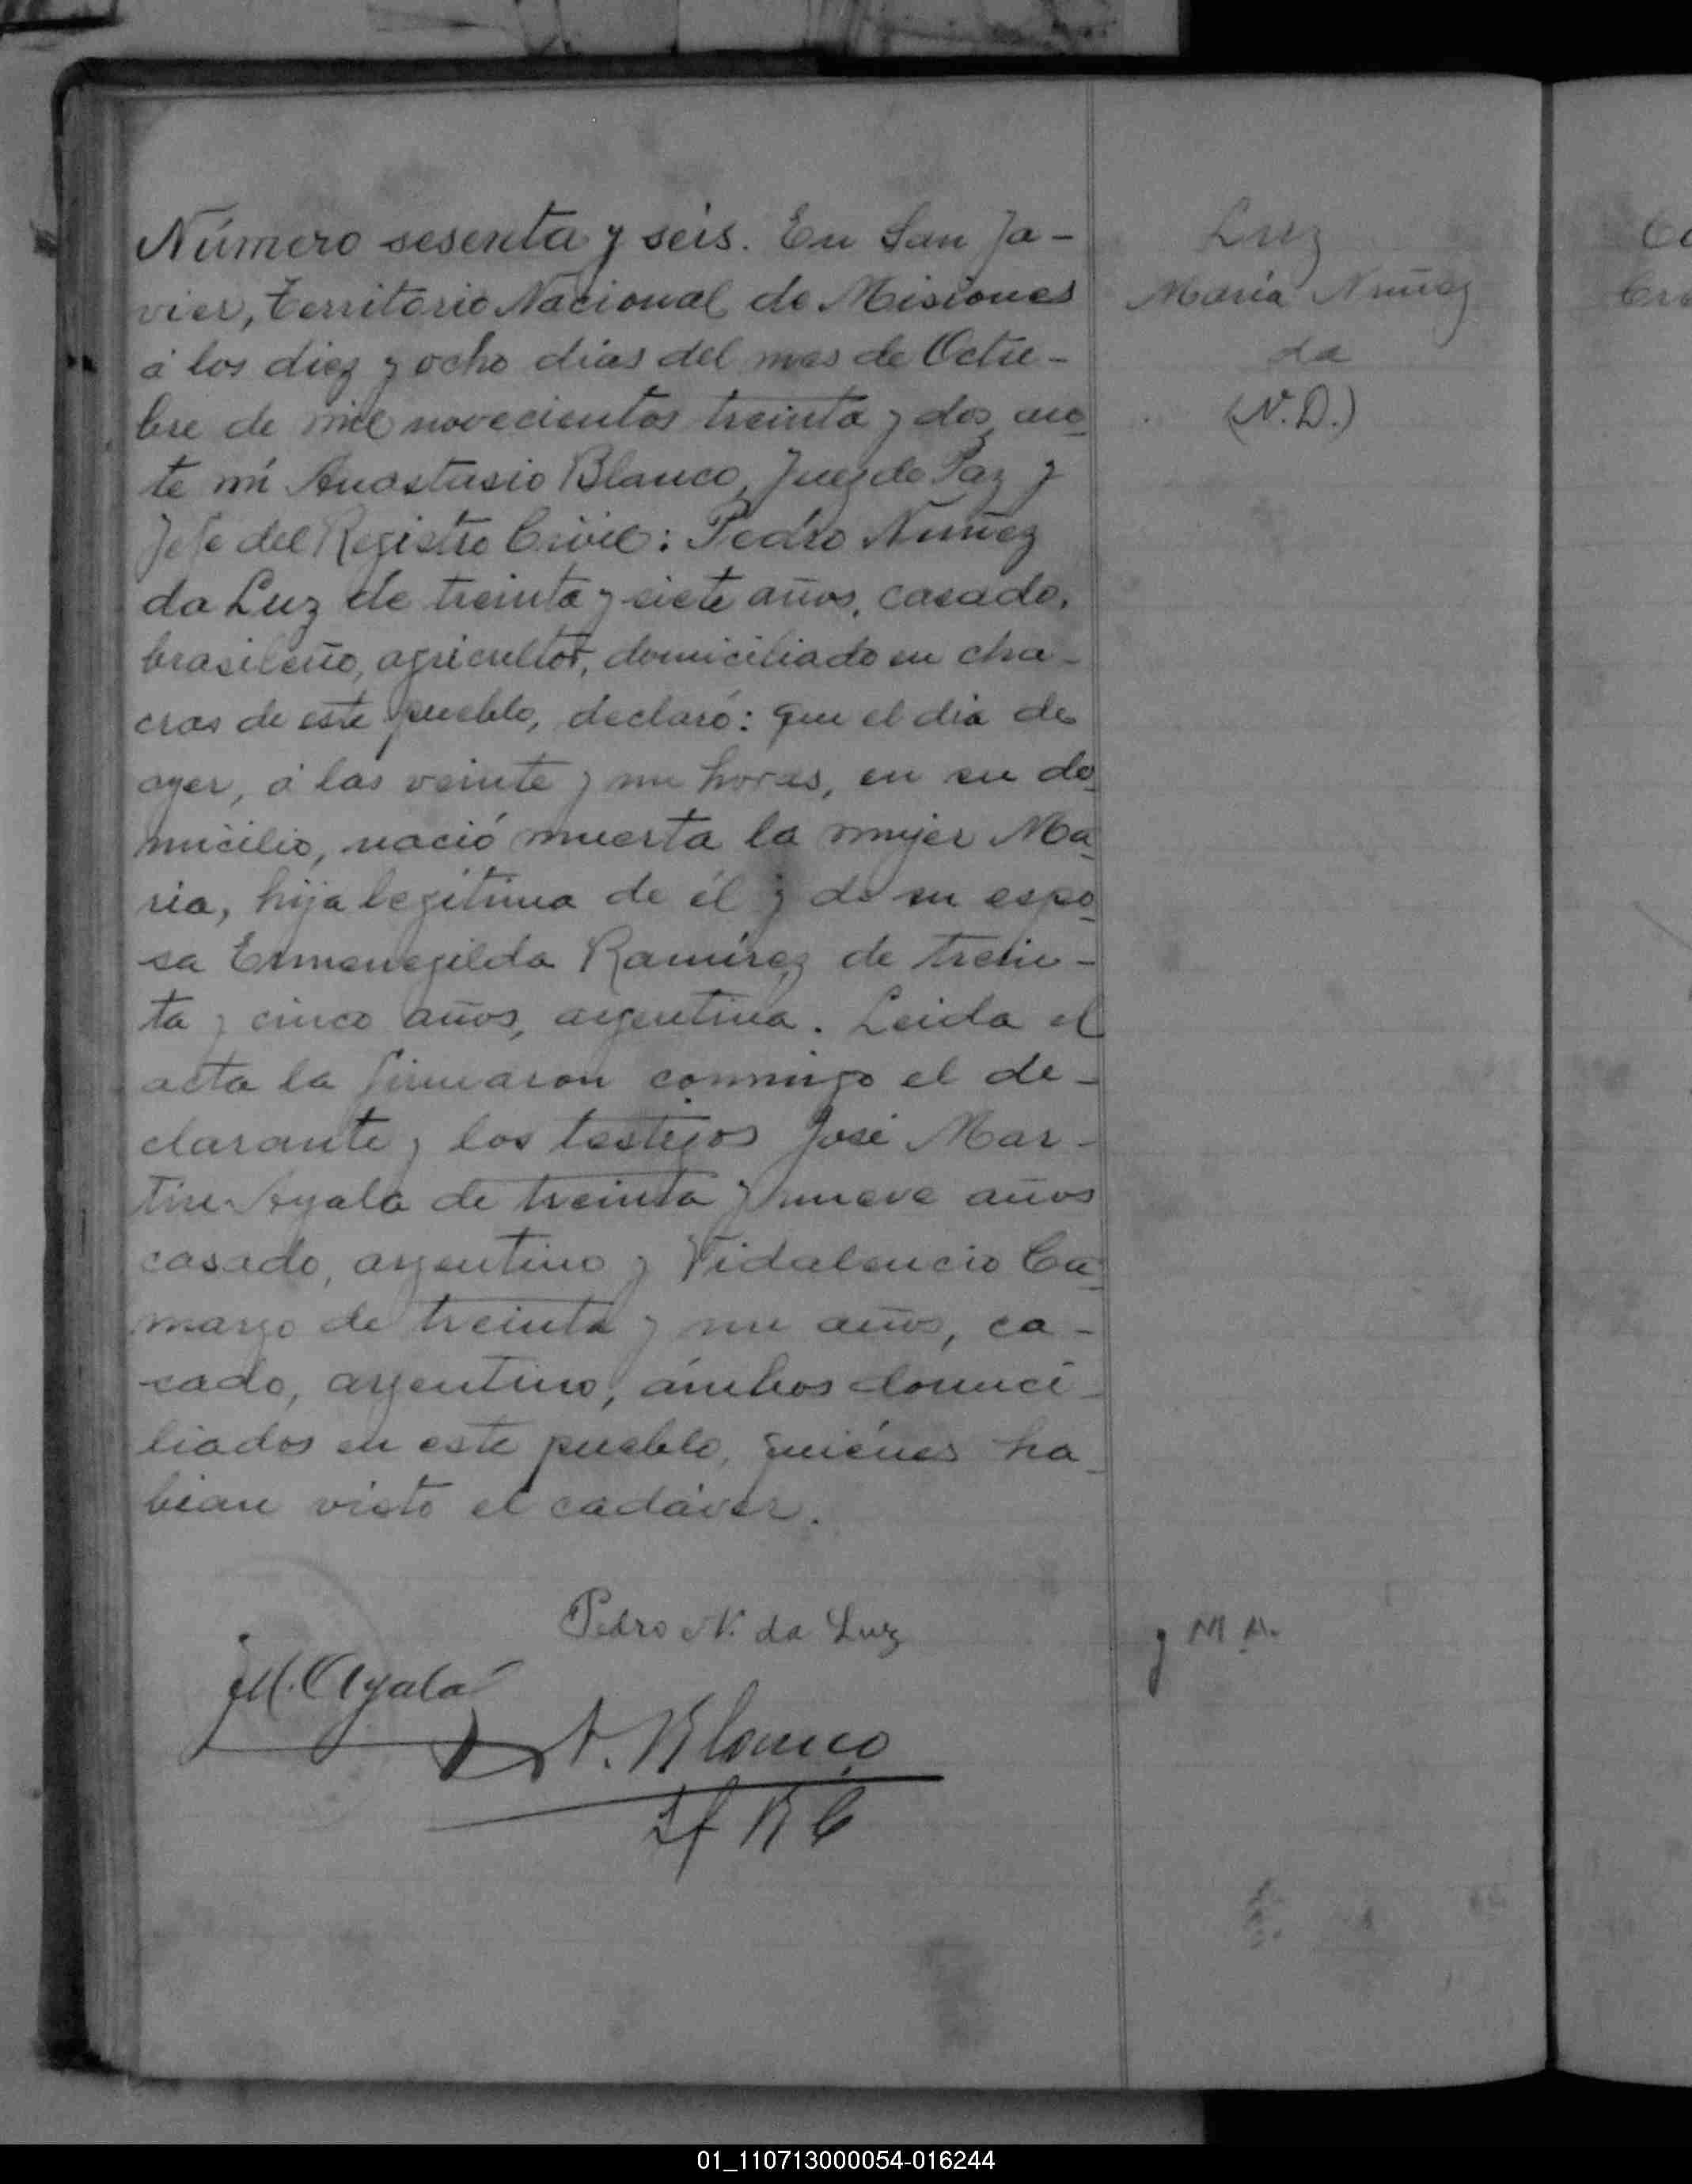 Número sesenta y seis. En San Ja-
vier, territorio Nacional de Misiones
á los diez y ocho dias del mes de Octu-
bre de mil novecientos treinta y dos, an-
te mí Anastasio Blanco, Juez de Paz y
Jefe del Registro Civil: Pedro Nuñez
da Luz de treinta y siete años, casado,
brasileño, agricultor, domiciliado en cha-
cras de este pueblo, declaró: que el dia de
ayer, á las veinte y un horas, en su do-
micilio, nació muerta la mujer Ma-
ria, hija legítima de él y de su espo-
sa Ermenegilda Ramírez de trein-
ta y cinco años, argentina. Leida el
acta la firmaron conmigo el de-
clarante y los testigos José Mar-
tin Ayala de treinta y nueve años
casado, argentino y Vidalencio Ca-
margo de treinta y un años, ca-
sado, argentino, ámbos domici-
liados en este pueblo, quiénes ha-
bian visto el cadáver.
Pedro N. da Luz
JM. Ayala
A. Blanco
Jf R C
Luz
Maria Nuñez
da
(N.D.)
01_110713000054-016244